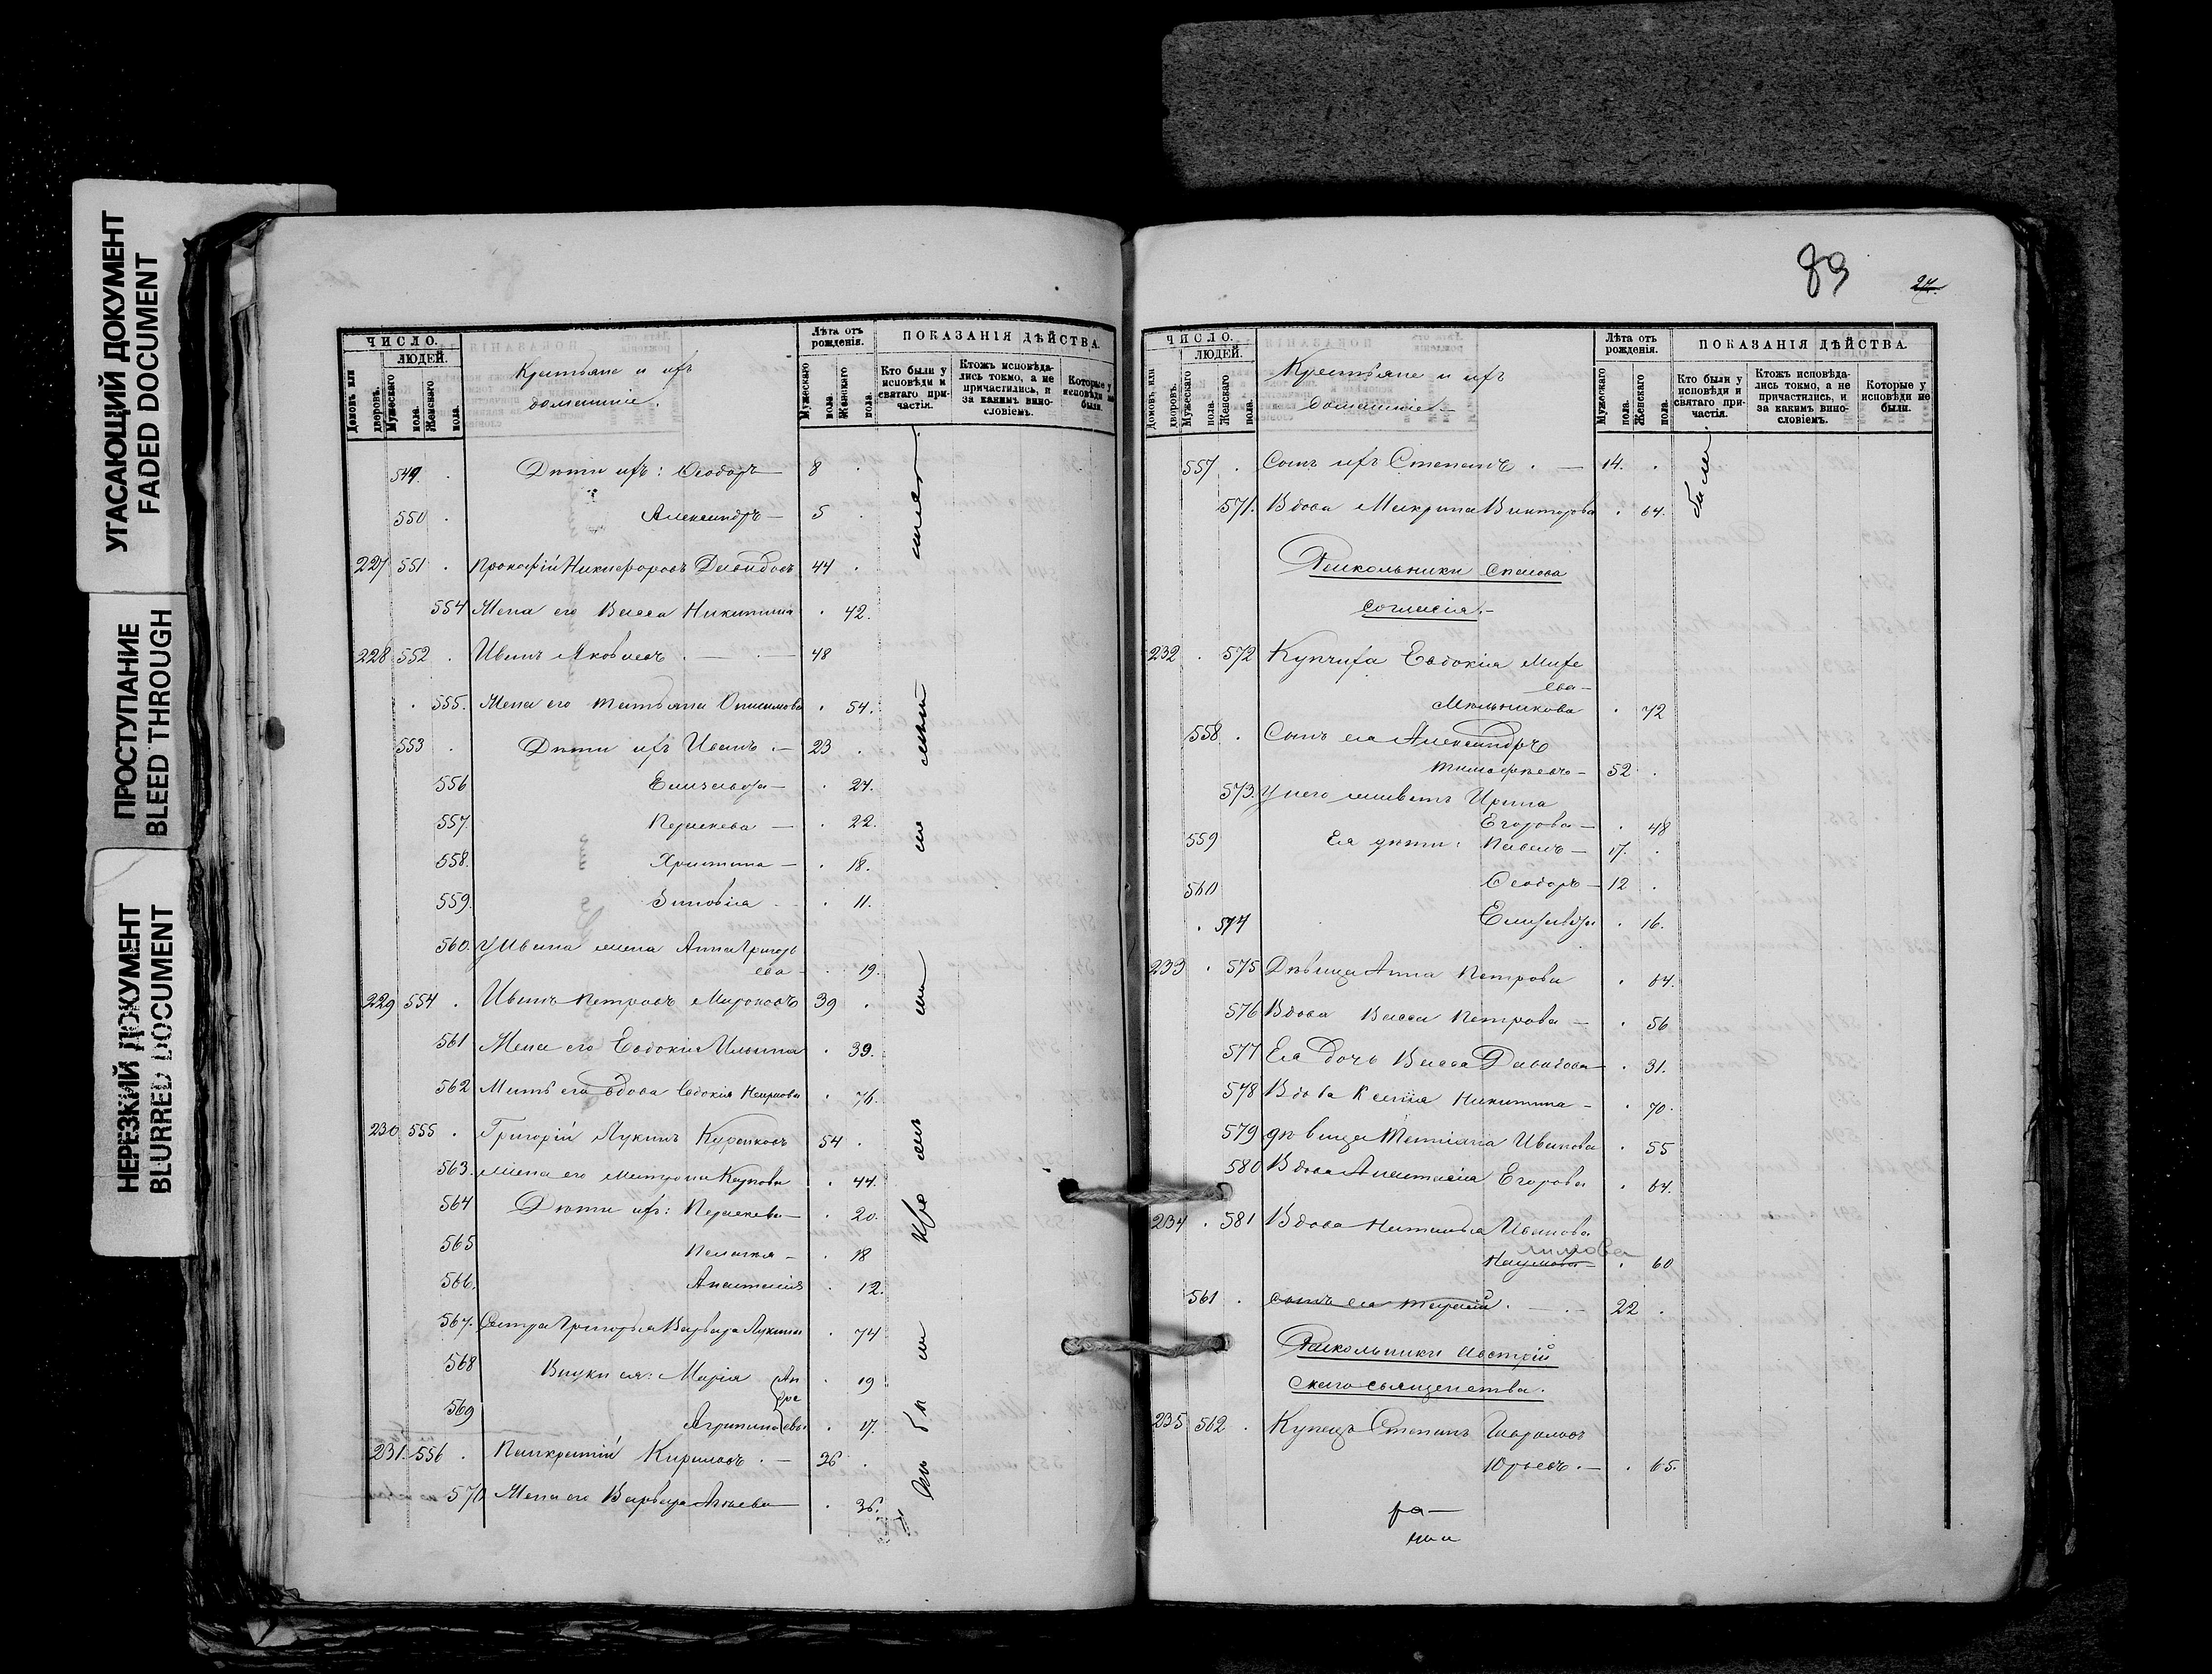 УГАСАЮЩИЙ ДОКУМЕНТ
FADED DOCUMENT
ПРОСТУПАНИЕ
BLEED THROUGH
НЕРЕЗКИЙ ДОКУМЕНТ
BLURRED DOCUMENT
ЧИСЛО.
ЛЮДЕЙ.
Домовъ или дворовъ.
Мужескаго пола.
Женскаго пола.
Крестьяне и ихъ
домашніе.
Лѣта отъ рожденія.
Мужескаго пола.
Женскаго пола.
ПОКАЗАНІЯ ДѢЙСТВА.
Кто были у исповѣди и святаго причастія.
Ктожъ исповѣдались токмо, а не причастились, и за какимъ винословіемъ.
Которые у исповѣди не были.
549. Дѣти ихъ: Ѳеодоръ 8
550 Александръ 5
227 551 Прокофій Никифоровъ Давидовъ 44
554 Жена его Васса Никитина 42.
228 552 Иванъ Яковлевъ 48
555. Жена его Татьяна Онисимова 54.
553 Дѣти ихъ Иванъ 23
556 Елисавета 24.
557. Параскева 22.
558. Христина 18.
559. Зиновія 11.
560. У Ивана жена Анна Григорь
ева 19.
229 554 Иванъ Петровъ Мироновъ 39
561 Жена его Евдокія Ильина 39.
562 Мать его вдова Евдокія Карпова 76.
230 555 Григорій Лукинъ 54
563. Жена его Матрона Карпова 44.
564 Дѣти ихъ: Параскева 20.
565 Пелагія 18
566. Анастасія 12.
567. Сестра Григорья Варвара Лукина 74
568 Внуки ея: Марія 19
569 Агрипина 17.
Андреевы
231. 556 Панкратій Кириловъ 36
570 Жена его Варвара 36.
89
24.
ЧИСЛО.
ЛЮДЕЙ.
Домовъ или дворовъ.
Мужескаго пола.
Женскаго пола.
Крестьяне и ихъ
домашніе
Лѣта отъ рожденія.
Мужескаго пола.
Женскаго пола.
ПОКАЗАНІЯ ДѢЙСТВА.
Кто были у исповѣди и святаго причастія.
Ктожъ исповѣдались токмо, а не причастились, и за какимъ винословіемъ.
Которые у исповѣди не были.
557 Сынъ ихъ Степанъ 14.
были
571. Вдова Макрина Викторова 64.
Раскольники Спасова
согласія
232 572 Купчиха Евдокія Михе
ева
Мельникова 72
558 Сынъ ея Александръ
Тимофѣевъ 52
573. У него живетъ Ирина
Егорова 48
559 Ея дѣти: Павелъ 17.
560 Ѳеодоръ 12
574 Елизавета 16.
233 575 Дѣвица Анна Петрова 64.
576 Вдова Васса Петрова 56
577 Ея дочь Васса Давидова 31.
578 Вдова Ксенія Никитина 70.
579 Дѣвица Татіана Иванова 55
580 Вдова Анастасія Егорова 64.
234 581 Вдова Наталья Иванова
Наумова 60
561 сынъ ея Тарасій 22
Раскольники Австрій
скаго священства.
235 562 Купецъ Степанъ
Юрьевъ 65.